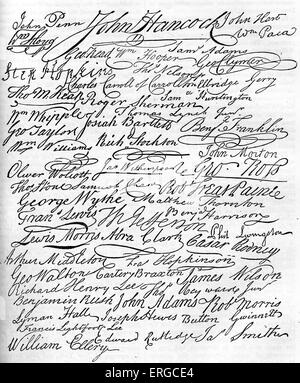 John Penn John Hancock John Hart
Wm Floyd Wm Paca
Geo Read Wm Hooper Saml Adams
Step Hopkins Geo Clymer
Tho Nelson jr
Charles Carroll of Carrollton Elbridge Gerry
Tho M:Kean Roger Sherman Saml Huntington
Wm Whipple Thomas Lynch Junr
Geo Taylor Josiah Bartlett Benj Franklin
Wm Williams Richd Stockton
John Morton
Oliver Wolcott Jno Witherspoon Geo. Ross
Thos Stone Samuel Chase Robt Treat Paine
George Wythe Matthew Thornton
Frans Lewis Th Jefferson Benj Harrison
Lewis Morris Abra Clark Phil Livingston
Casar Rodney
Arthur Middleton Fras Hopkinson
Geo Walton Carter Braxton James Wilson
Richard Henry Lee Thos Heyward Junr
Benjamin Rush John Adams Robt Morris
Lyman Hall Joseph Hewes Button Gwinnett
Francis Lightfoot Lee
William Ellery Edward Rutledge Jas Smith
alamy stock photo
ERGCE4